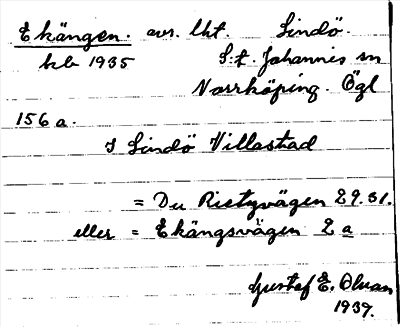 Ekängen. avs. lht. Lindö.
kb 1935 S:t Johannis sn
Norrköping. Ögl
156 a.
I Lindö Villastad
= Du Rietzvägen 29.31.
eller = Ekängsvägen 2 a
Gustaf E. Olsson
1939.